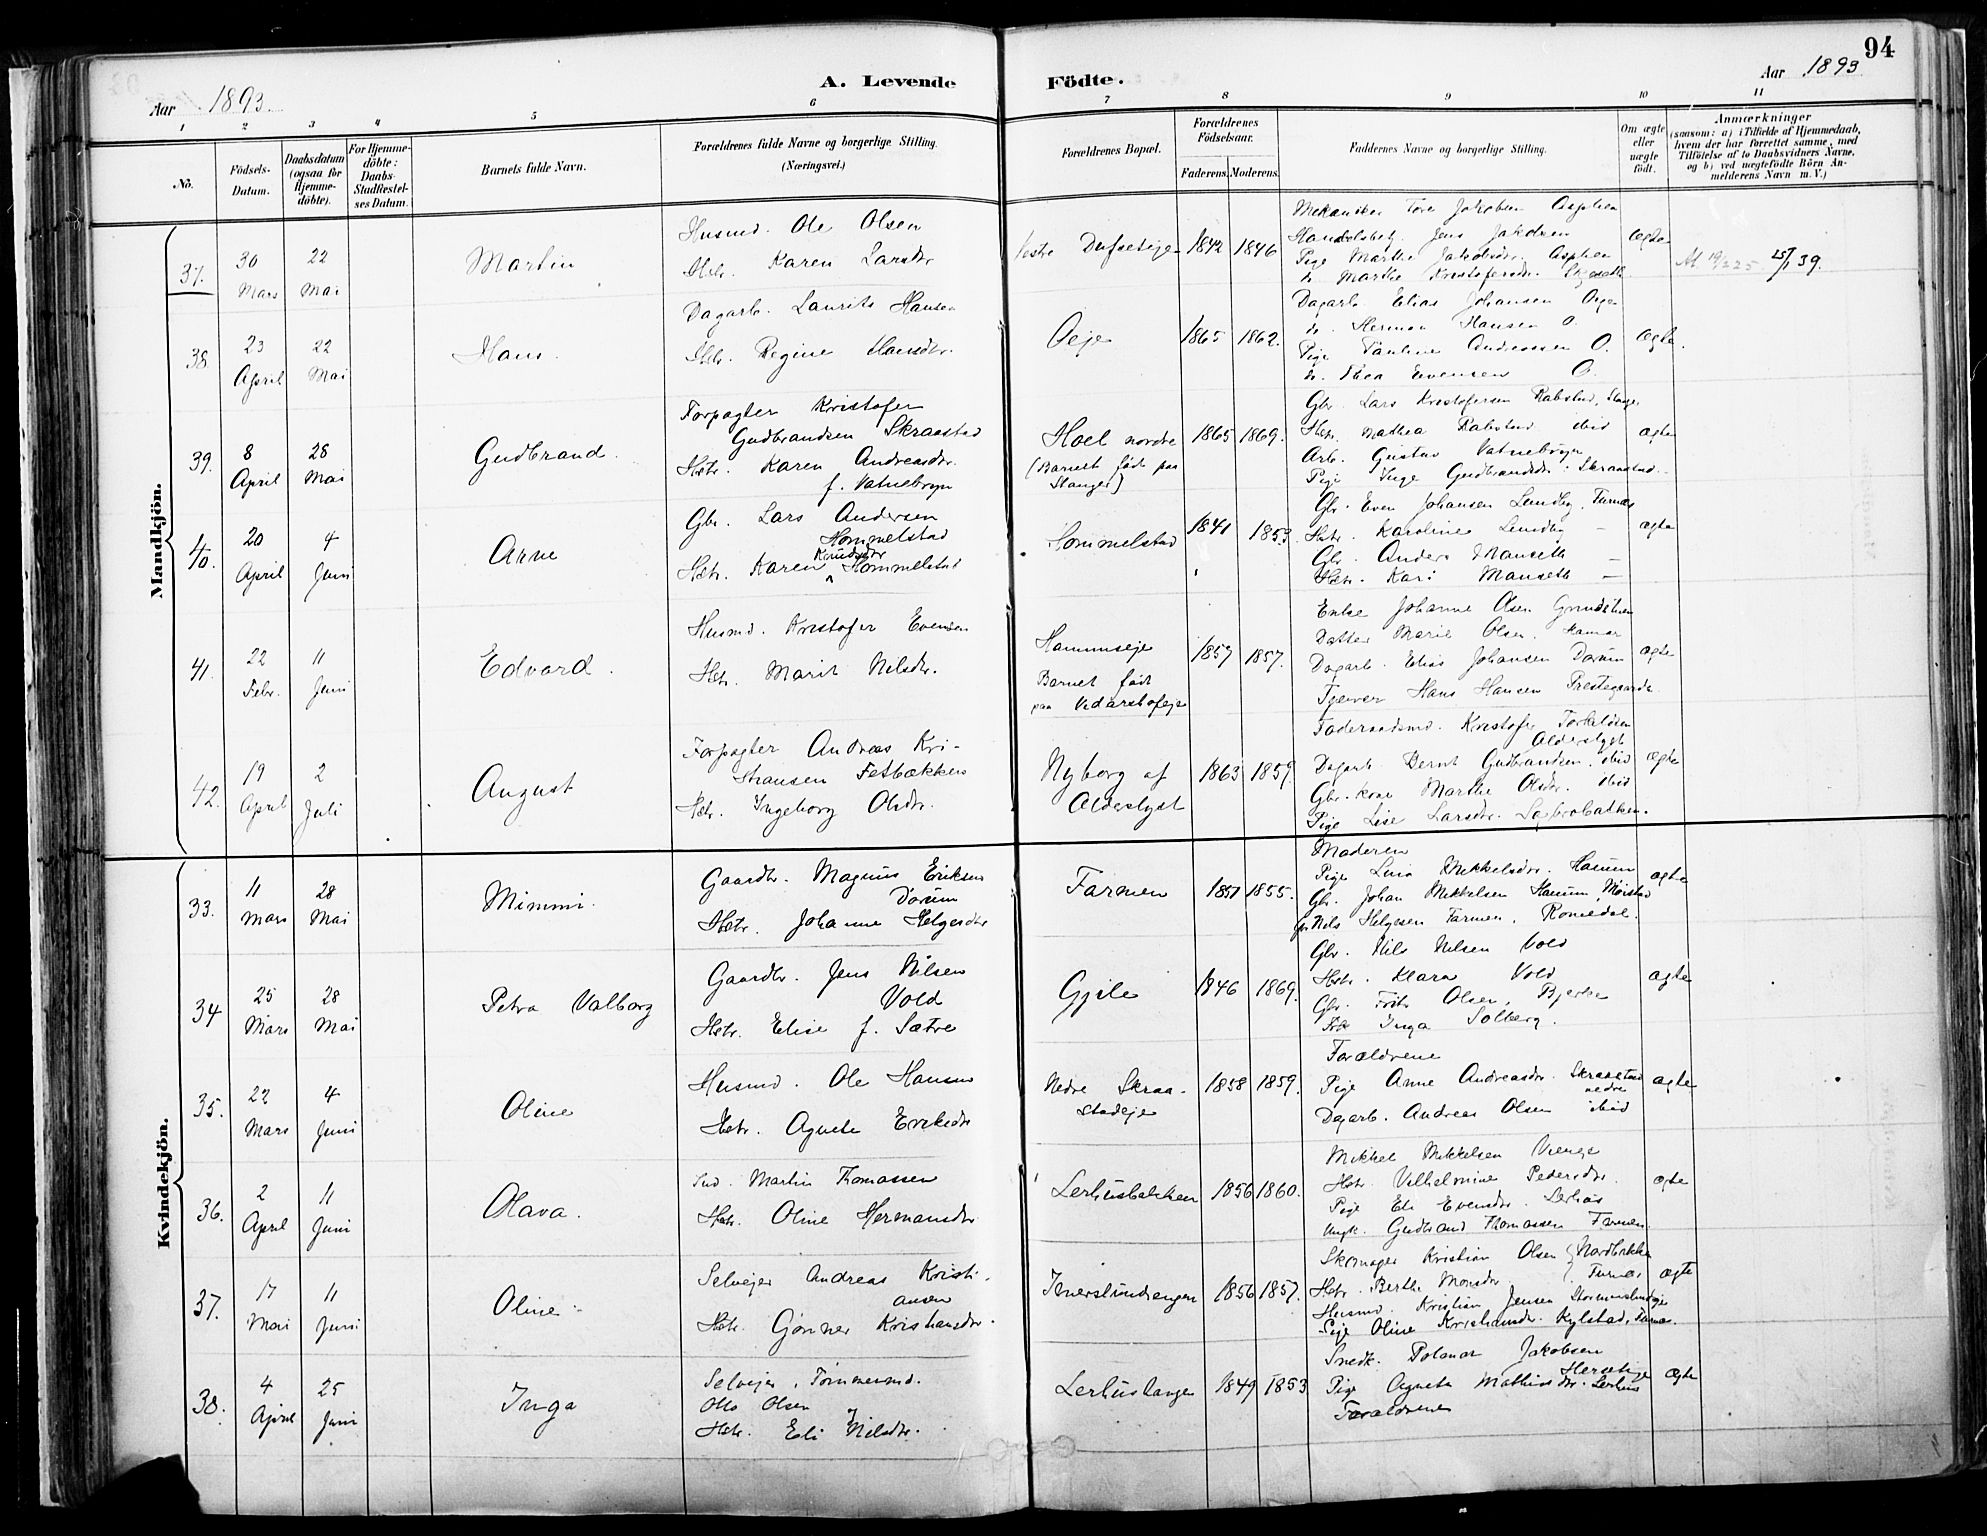 94
Aar 1893.
A. Levende Födte.
Aar 1893
1 2 3 4 5 6 7 8 9 10 11
No.
Födsels-Datum.
Daabsdatum (ogsaa for Hjemmedöbte).
For Hjemmedöbte: Daabs-Stadfæstelses Datum.
Barnets fulde Navn.
Forældrenes fulde Navne og borgerlige Stilling. (Næringsvei.)
Forældrenes Bopæl.
Forældrenes Födselsaar.
Faderens. Moderens.
Faddernes Navne og borgerlige Stilling.
Om ægte eller uægte födt.
Anmærkninger
(saasom: a) i Tilfælde af Hjemmedaab, hvem der har forrettet samme, med Tilföielse af to Daabsvidners Navne, og b) ved uægtefödte Börn Anmelderens Navn m. V.)
Mandkjön.
37. 30 Mars 22 Mai
Martin
Husmd. Ole Olsen
Hstr. Karen Larsdtr
1842 1846
Mekaniker Tore Jakobsen
Jens Jakobsen
Pige Marthe Jakobsdr.
do. Marthe Kristofersdr.
ægte
25/1 39.
38. 23 April 22 Mai
Hans.
Dagarb. Laurits Hansen
Hstr. Regine Hansdtr.
Oeje
1865 1862.
Dagarb. Elias Johansen
do. Herman Hansen O.
Pige Pauline Andreassen O.
do. Thea Evensen O.
ægte.
39. 8 April 28 Mai
Gudbrand.
Forpagter Kristofer
Gudbrandsen Skraastad
Hstr. Karen Andreasdr.
f. Vatnebryn
Hoel nordre
(Barnet född paa
Stange)
1865 1869.
Gbr. Lars Kristofersen Rabstad, Stange,
Hstr. Mathea Rabstad ibid
Arb. Gustav Vatnebryn
Pige Inge Gudbrandsdr. Skraastad.
ægte
40. 20 April 4 Juni
Arne
Gbr. Lars Andersen
Hommelstad
Knudsdtr
Hstr. Karen Hommelstad
Hommelstad
1841 1853.
Gbr. Even Johansen Lundby, Furnes
Hstr. Karoline Lundby —
Gbr. Anders Manseth —
Hstr. Kari Manseth —
ægte
41. 22 Febr. 11 Juni
Edvard.
Husmd. Kristofer Evensen
Hstr. Marit Nilsdtr.
Hommseje
Barnet född
paa Vidarshofeje
1857 1857.
Enke Johanne Olsen
Datter Marie Olsen. Hamar
Dagarb. Elias Johansen Dørum
Tjener Hans Hansen
ægte
42. 19 April 2 Juli
August
Forpagter Andreas Kri-
stiansen Fetbækken
Hstr. Ingeborg Olsdr.
Nyborg af
Alderslyst
1863 1859.
Føderaadsmd. Kristofer Torkildsen
Alderslyst
Dagarb. Bernt Gudbrandsen. ibid
Gbr. kone Marthe Olsdr. ibid
Pige Lise Larsdr.
ægte
Kvindekjön.
33. 11 Mars 28 Mai
Mimmi.
Gaardbr. Magnus Eriksen
Dørum
Hstr. Johanne Helgesdtr
Farmen
1857 1855.
Moderen
Pige Lina Mikkelsdr. Hamm
Gbr. Johan Mikkelsen Hamm, Møistad
Nils Helgesen Farmen, Romedal.
ægte
34 25 Mars 28 Mai
Petra Valborg
Gaardbr. Jens Nilsen
Vold
Hstr. Elise f. Sætre
Gjile
1846 1869.
Gbr. Nils Nilsen Vold
Hstr. Klara Vold
Gbr. Frits Olsen. Bjerke
Frk Inga Solberg.
ægte
35. 22 Mars 4 Juni
Oline
Husmd. Ole Hansen
Hstr. Agnete Eriksdr
Nedre Skraa-
stadeje
1858 1859.
Forældrene
Pige Anne Andreasdr. Skraastad
nedre
Dagarb. Andreas Olsen ibid
ægte
36. 2 April 11 Juni
Olava.
Smd. Martin Thomassen
Hstr. Oline Hermansdtr
Lerhusbakken
1856 1860.
Mikkel Mikkelsen
Hstr. Vilhelmine Pedersdr.
Pige Eli Evensdr. Lerhus
Ungk. Gudbrand Thomassen Farmen.
ægte
37. 17 Mai 11 Juni
Oline
Selvejer Andreas Kristi-
ansen
Hstr. Gønner Kristiansdr.
1856 1857.
Skomager Kristian Olsen Nordbække
Hstr. Berthe Monsdr Furnæs
Husmd. Kristian Jensen
Pige Oline Kristiansdr. Kylstad, Furnæs.
ægte
38. 4 April 25 Juni
Inga
Selvejer, Tømmermd.
Otto Olsen
Hstr. Eli Nilsdtr.
Lerhushagen
1849 1853
Snedk. Polonar Jakobsen
Pige Agnete Mathiasdr. Lerhus
Forældrene
ægte